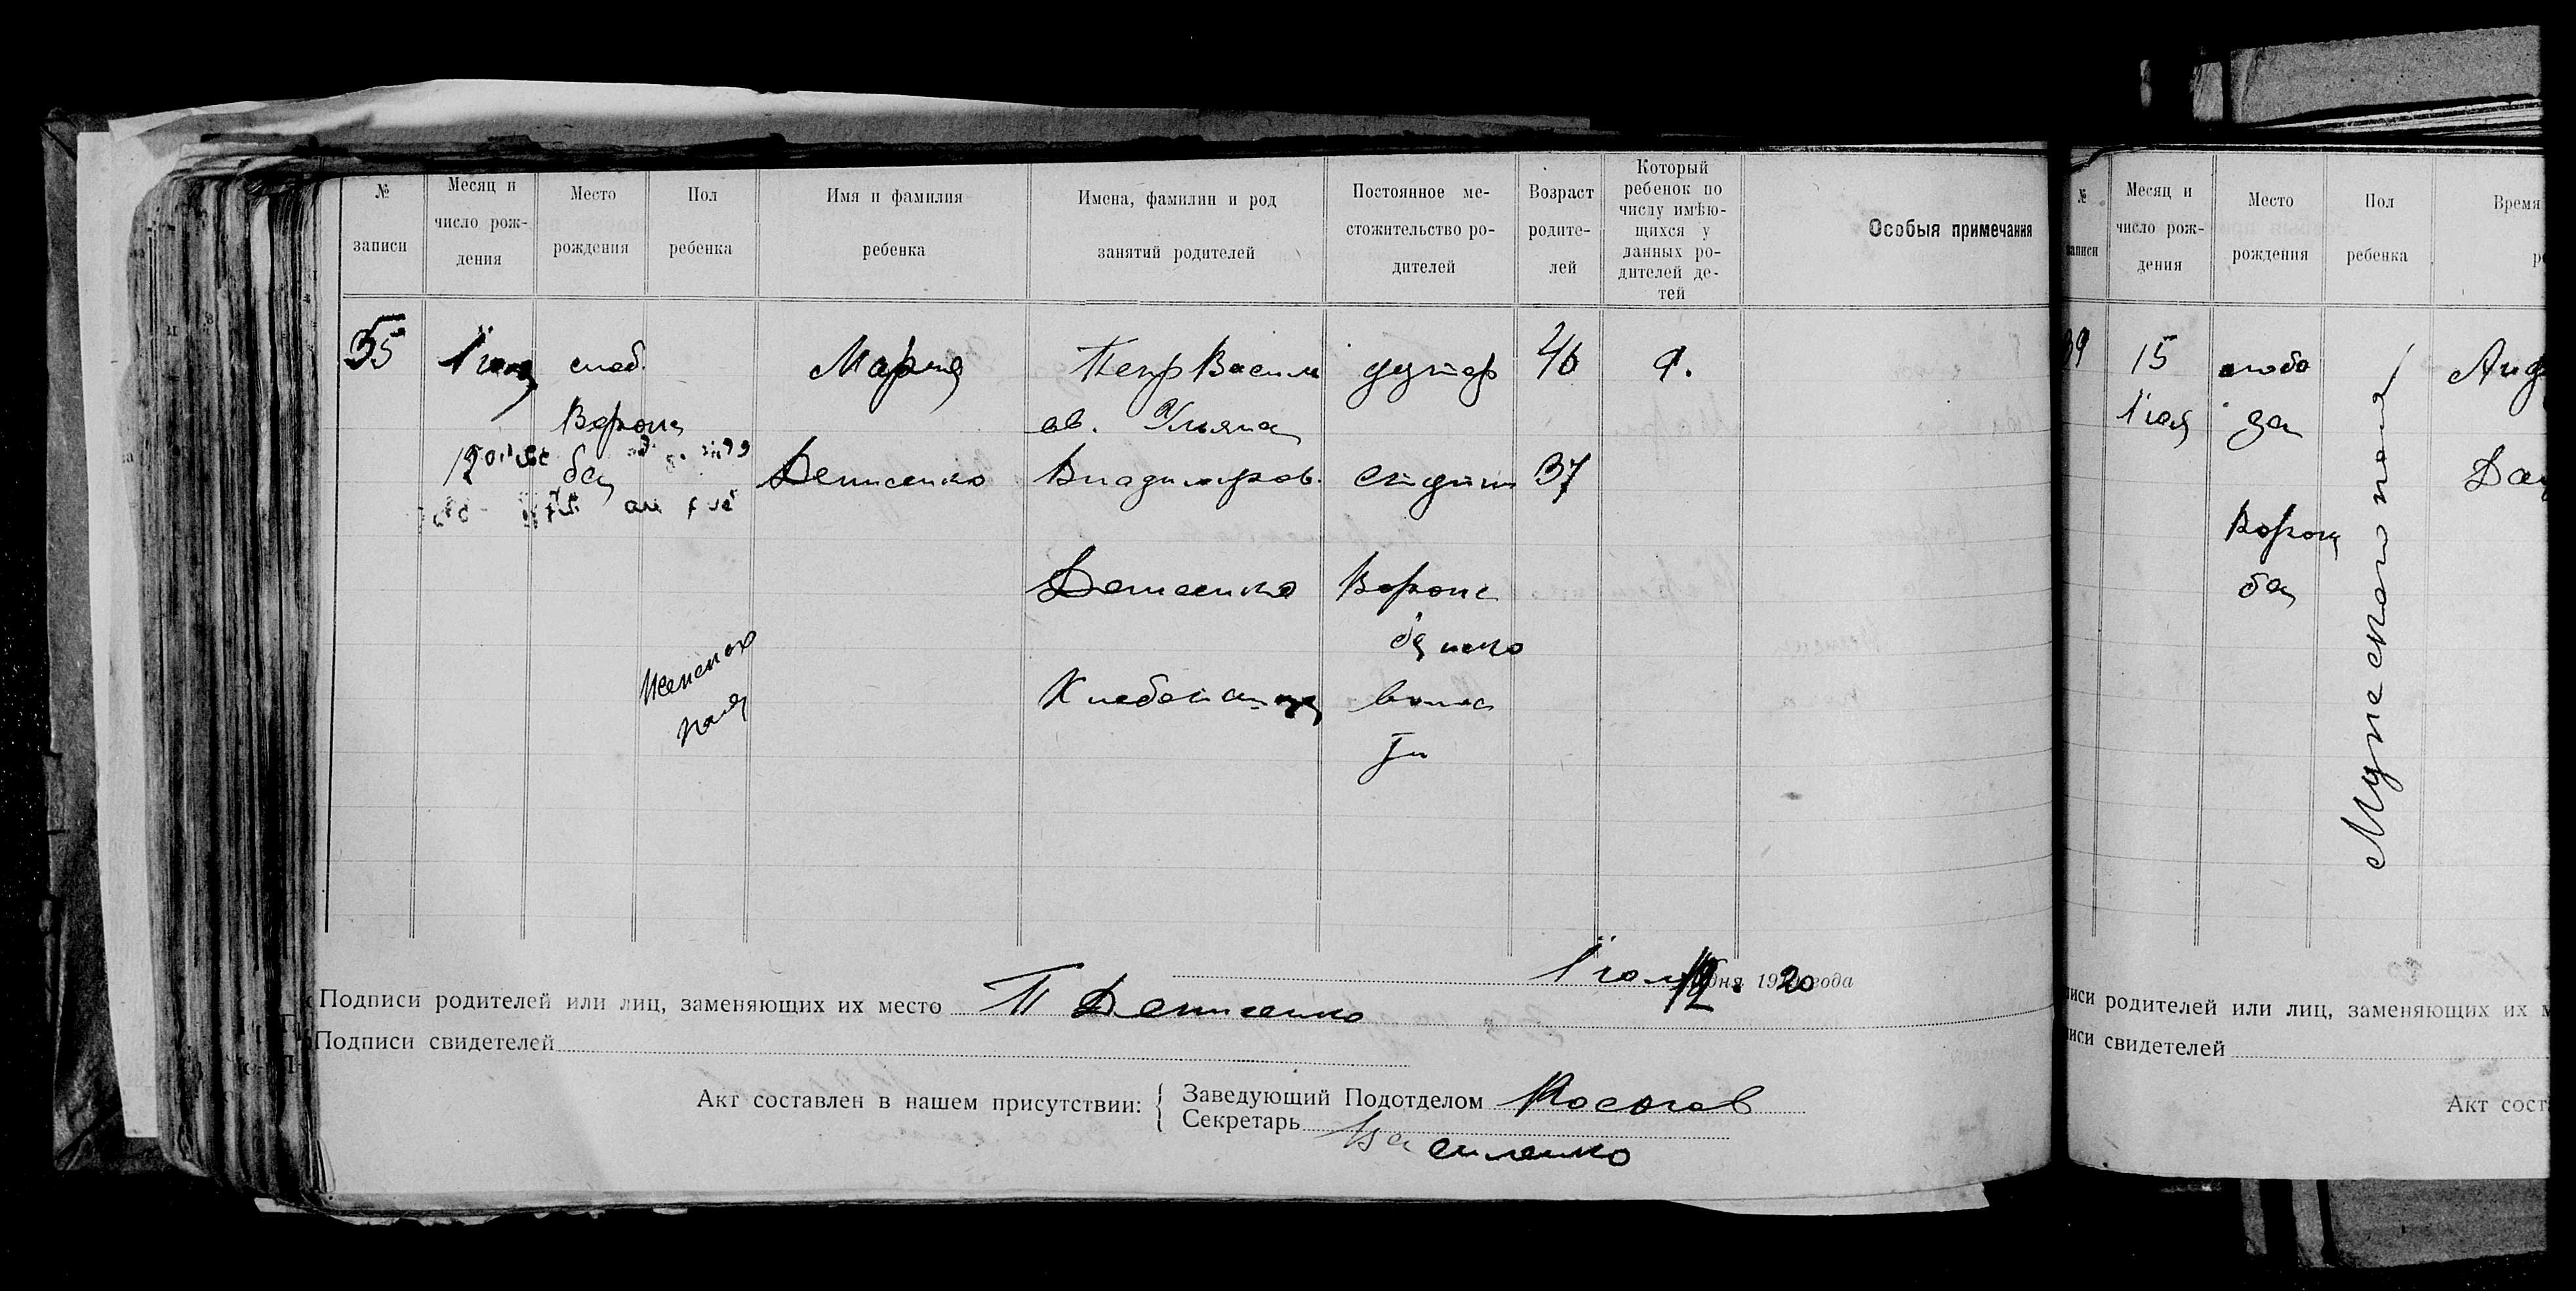 №
записи
Месяц и
число рож-
дения
Место
рождения
Пол
ребенка
Имя и фамилия
ребенка
Имена, фамилии и род
занятий родителей
Постоянное ме-
стожительство ро-
дителей
Возраст
родите-
лей
Который
ребенок по
числу имѣю-
щихся у
данных ро-
дителей де-
тей
Особыя примечания
55
12
слоб.
Ворож
ба
Женского
пола
Мария
Денисенко
Петр Васили
ов. Ульяна
Владимиров.
Денисенко
Хлебопашцы
хутор
Ворож
бянско
волос
ти
46
37
9.
Июля 12 дня 1920 года
Подписи родителей или лиц, заменяющих их место П Денисенко
Подписи свидетелей
Акт составлен в нашем присутствии:
Заведующий Подотделом
Секретарь Василенко
№
записи
Месяц и
число рож-
дения
Место
рождения
Пол
ребенка
Время
39
15
Июля
слобо
да
Ворож
ба
Мужеского пола
писи родителей или лиц, заменяющих их м
писи свидетелей
Акт сост